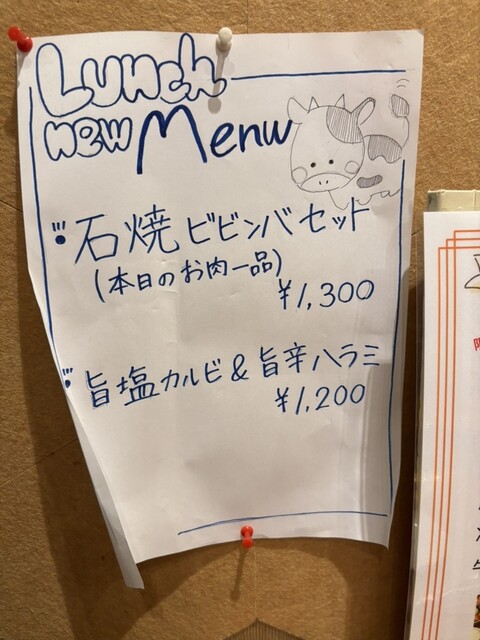 Lunch
new Menu
石焼ビビンバセット
(本日のお肉一品)
¥1,300
旨塩カルビ&旨辛ハラミ
¥1,200